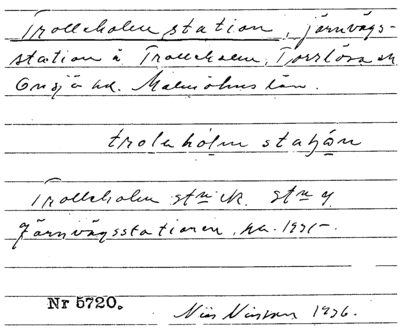 Trolleholm station, järnvägs-
station i Trolleholm, Torrlösa sn
Onsjö hd. Malmöhus län.
troleholm staʃån
Trolleholm
Järnvägsstationen, 
Nr 5720.
Nils Nilsson 1936.